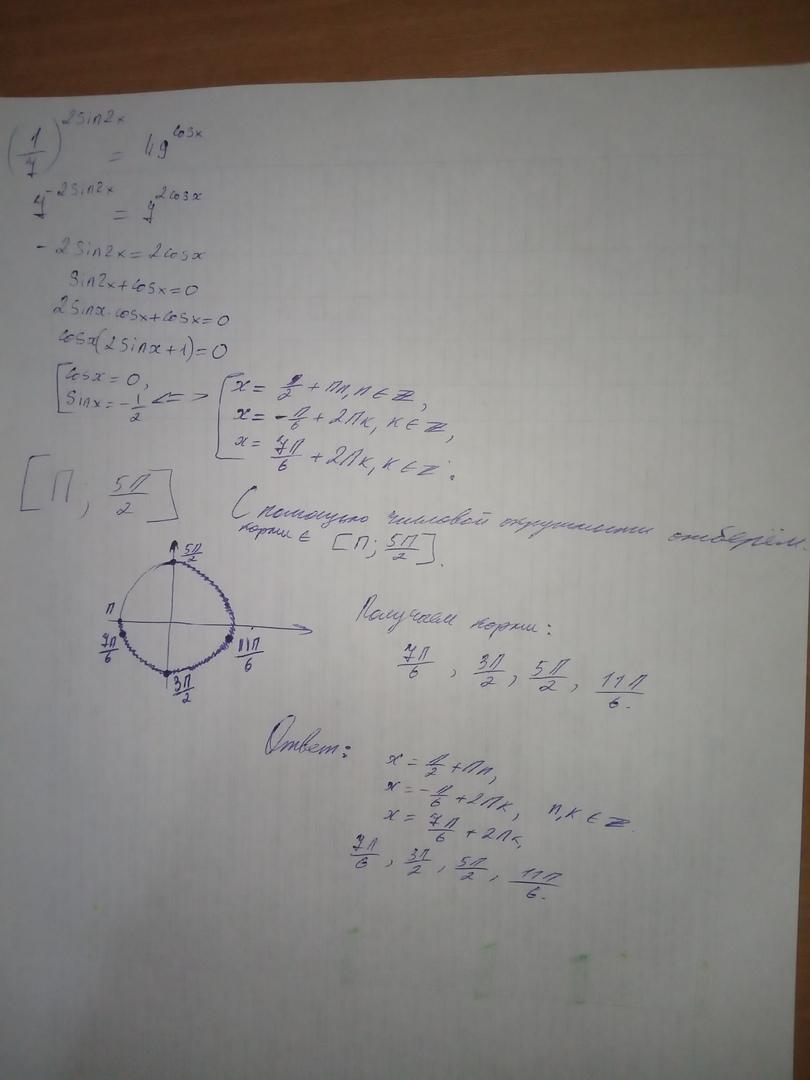 (1/7)^(2sin2x) = 49^(cosx)
7^(-2sin2x) = 7^(2cosx)
- 2sin2x = 2cosx
sin2x + cosx = 0
2sinx·cosx + cosx = 0
cosx(2sinx + 1) = 0
[ cosx = 0, sinx = -1/2 <=> [ x = π/2 + πn, n ∈ Z,
x = -π/6 + 2πk, k ∈ Z,
x = 7π/6 + 2πk, k ∈ Z.
[π ; 5π/2]
С помощью числовой окружности отберём
корни ∈ [π; 5π/2].
5π/2
π
7π/6
11π/6
3π/2
Получаем корни:
7π/6 , 3π/2 , 5π/2 , 11π/6.
Ответ:
x = π/2 + πn,
x = -π/6 + 2πk, n, k ∈ Z.
x = 7π/6 + 2πk,
7π/6 , 3π/2 , 5π/2 , 11π/6.